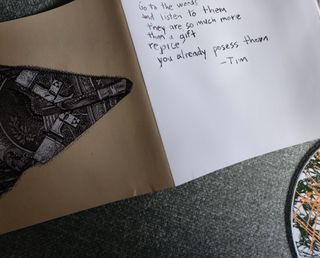 Go to the woods
and listen to them
they are so much more
than a gift
rejoice,
you already posess them
-Tim